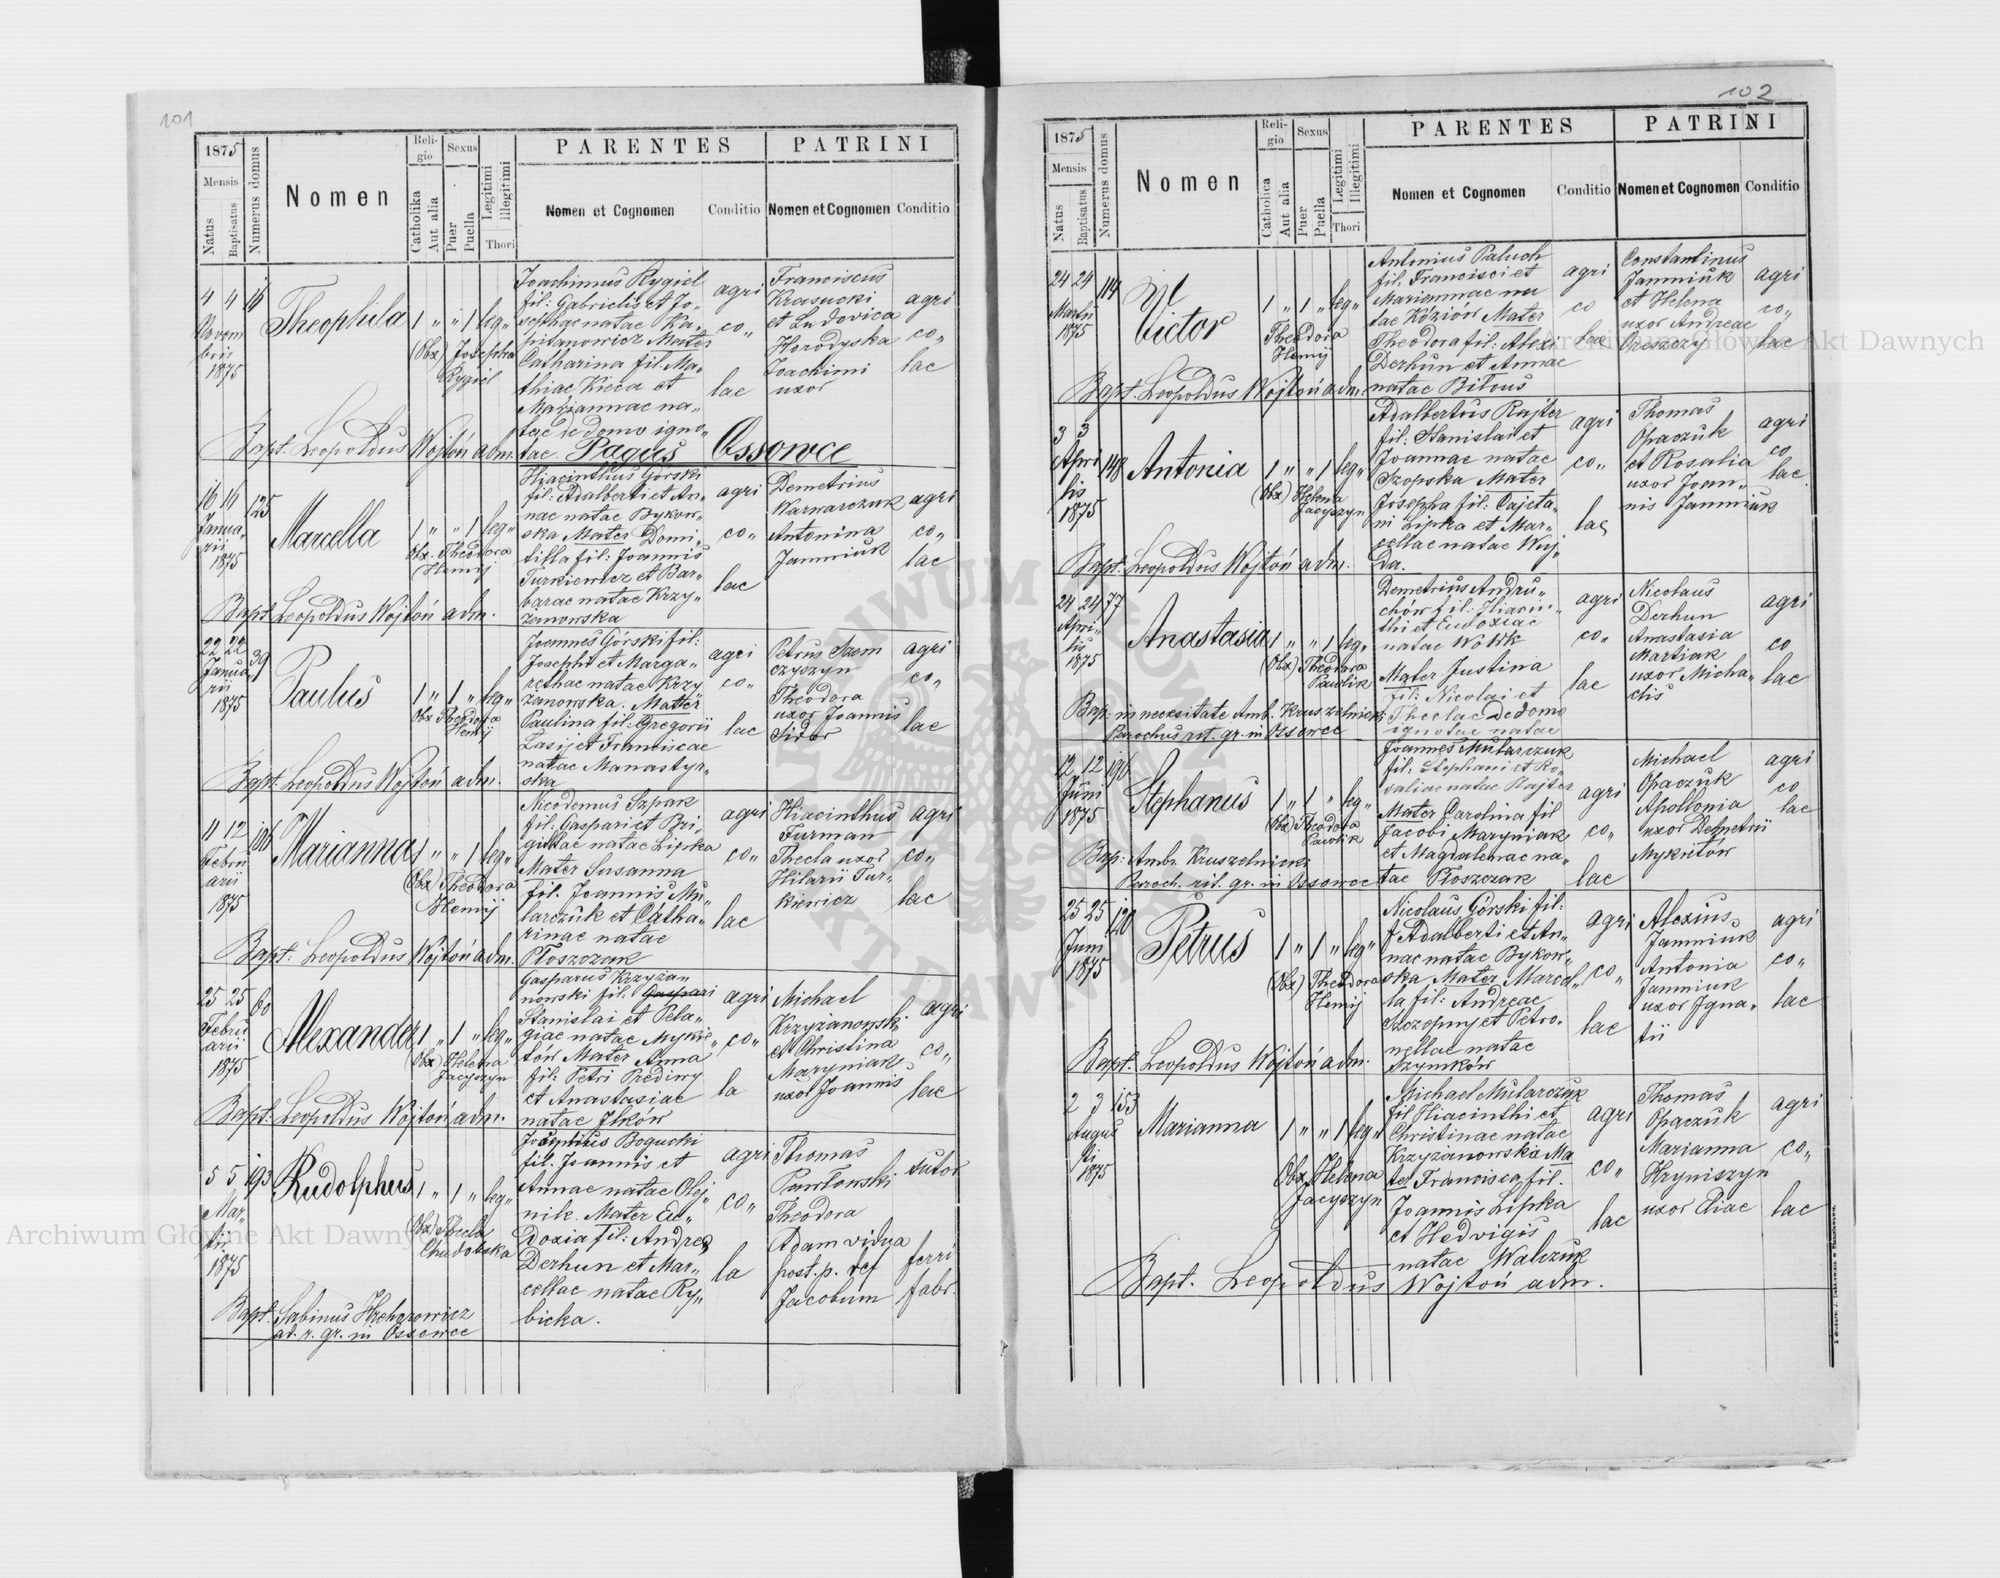 101
1875
Mensis
Natus
Baptisatus
Numerus domus
Nomen
Religio
Catholika
Aut alia
Sexus
Puer
Puella
Legitimi
Illegitimi
Thori
PARENTES
Nomen et Cognomen
Conditio
PATRINI
Nomen et Cognomen
Conditio
4 4 16
Novem
bris
1875
Theophila
1 " " 1 leg"
(Obx) Josepha
Rygiel
Joachimus Rygiel
fil: Gabrielis et Jo„
sephae natae Ka„
pitanowicz Mater
Catharina fil. Ma„
thiae Kieca et
Mariannae na„
tae de domo igno„
tae.
agri
co„
lac
Franciscus
Krasucki
et Ludovica
Horodyska
Joachimi
uxor
agri
co„
lac
Bapt. Leopoldus Wojtoń adm.
Pagus Ossowce
16 16 125
Janua„
rii
1875
Marcella
1 " " 1 leg"
Obx. Theodora
Hemij
Hiacinthus Górski
fil: Adalberti et An„
nae natae Bykow„
ska Mater Domi„
tilla fil: Joannis
Turkiewicz et Bar„
barae natae Krzy„
żanowska
agri
co„
lac
Demetrius
Warwarczuk
Antonina
Jamniuk
agri
co„
lac
Bapt. Leopoldus Wojtoń adm.
22 22 39
Janua
rii
1875
Paulus
1 " 1 " leg"
Obx Theodora
Hemij
Joannes Górski fil:
Josephi et Marga„
rethae natae Krzy
żanowska. Mater
Paulina fil. Gregorii
Łasij et Franciscae
natae Manastyr„
ska
agri
co„
lac
Petrus Szem
czyszyn
Theodora
uxor Joannis
Sidor
agri
co„
lac
Bapt. Leopoldus Wojtoń adm.
11 12 186
Febru
arii
1875
Marianna
1 " " 1 leg"
(Obx) Theodora
Hemij
Nicodemus Szpak
fil: Gaspari et Bri„
gittae natae Lipka
Mater Susanna
fil. Joannis Mu„
larczuk et Catha„
rinae natae
Płoszczak
agri
co„
lac
Hiacinthus
Furman
Thecla uxor
Hilarii Tur„
kiewicz
agri
co„
lac
Bapt. Leopoldus Wojtoń adm.
25 25 60
Febru
arii
1875
Alexander
1 " 1 " leg"
(Obx) Helena
Jacyszyn
Gasparus Krzyżan
nowski fil. Gaspari
Stanislai et Pela„
giae natae Mykie„
tów Mater Anna
fil: Petri Prediny
et Anastasiae
natae Ilków
agri
co„
la
Michael
Krzyżanowski
et Christina
Maryniak
uxor Joannis
agri
co„
lac
Bapt. Leopoldus Wojtoń adm.
5 5 193
Mar„
tii
1875
Rudolphus
1 " 1 " leg"
(Obx) Thecla
Chudobska
Josephus Bogucki
fil. Joannis et
Annae natae Olej„
nik. Mater Eu„
doxia fil: Andrea
Derhun et Mar„
cellae natae Ry„
bicka.
agri
co„
la
Thomas
Pawłowski
Theodora
Adam vidua
post. p. def
Jacobum
sutor
ferri
fabr.
Bapt. Sabinus Hrehorowicz
ad. r. gr. in Ossowce
102
1875
Mensis
Natus
Baptisatus
Numerus domus
Nomen
Religio
Catholica
Aut alia
Sexus
Puer
Puella
Legitimi
Illegitimi
Thori
PARENTES
Nomen et Cognomen
Conditio
PATRINI
Nomen et Cognomen
Conditio
24 24 114
Martii
1875
Victor
1 " 1 " leg"
Theodora
Hemij
Antonius Paluch
fil. Francisci et
Mariannae na
tae Kozior Mater
Theodora fil. Alexi
Derhun et Annae
natae Biłous
agri
co
lac
Constantinus
Jamniuk
et Helena
uxor Andreae
agri
co„
lac
Bapt. Leopoldus Wojtoń adm.
3 3
Apri
lis
1875
148
Antonia
1 " " 1 leg"
(Obx) Helena
Jacyszyn
Adalbertus Rajter
fil: Stanislai et
Joannae natae
Szopska Mater
Josepha fil: Cajeta„
ni Lipka et Mar„
cellae natae Wuj„
Da.
agri
co„
lac
Thomas
Opaczuk
et Rosalia
uxor Joan„
nis Jamniuk
agri
co
lac
Bapt. Leopoldus Wojtoń adm.
24 24 77
Apri„
lis
1875
Anastasia
1 " " 1 leg"
(Obx) Theodora
Pawlik
Demetrius Andru„
chów fil: Hiacin„
thi et Eudoxiae
natae Wołk
Mater Justina
fil: Nicolai et
Theclae de domo
ignotae natae
agri
co„
lac
Nicolaus
Derhun
Anastasia
Martiak
uxor Micha„
elis
agri
co
lac
Bap: in necesitate Amb. Kruszelnicki
Parochus rit. gr. in Ossowce
12 12 196
Juni
1875
Stephanus
1 " 1 " leg"
(Obx) Theodora
Pawlik
Joannes Mularczuk
fil: Stephani et Ro„
saliae natae Rajter
Mater Carolina fil
Jacobi Maryniak
et Magdalenae na„
tae Płoszczak
agri
co„
lac
Michael
Opaczuk
Apollonia
uxor Demetrii
Mykietów
agri
co
lac
Bap: Ambr. Kruszelnicki
Paroch. rit. gr. in Ossowce
25 25 120
Juni
1875
Petrus
1 " 1 " leg"
(Obx) Theodora
Hemij
Nicolaus Górski fil:
Adalberti et An„
nae natae Bykow„
ska Mater Marcel„
la fil: Andreae
Szczopnyj et Petro„
nellae natae
Szymków
agri
co„
lac
Alexius
Jamniuk
Antonia
Jamniuk
uxor Igna„
tii
agri
co„
lac
Bapt. Leopoldus Wojtoń adm.
2 3 153
Augus
ti
1875
Marianna
1 " " 1 leg"
Obx Helena
Jacyszyn
Michael Mularczuk
fil Hiacinthi et
Christinae natae
Krzyżanowska Ma
ter Francisca fil.
Joannis Lipka
et Hedvigis
natae Walczuk
agri
co„
lac
Thomas
Opaczuk
Marianna
Hryniszyn
uxor Eliae
agri
co„
lac
Bapt. Leopoldus Wojtoń adm.
Archiwum Główne Akt Dawnych
Archiwum Główne Akt Dawnych